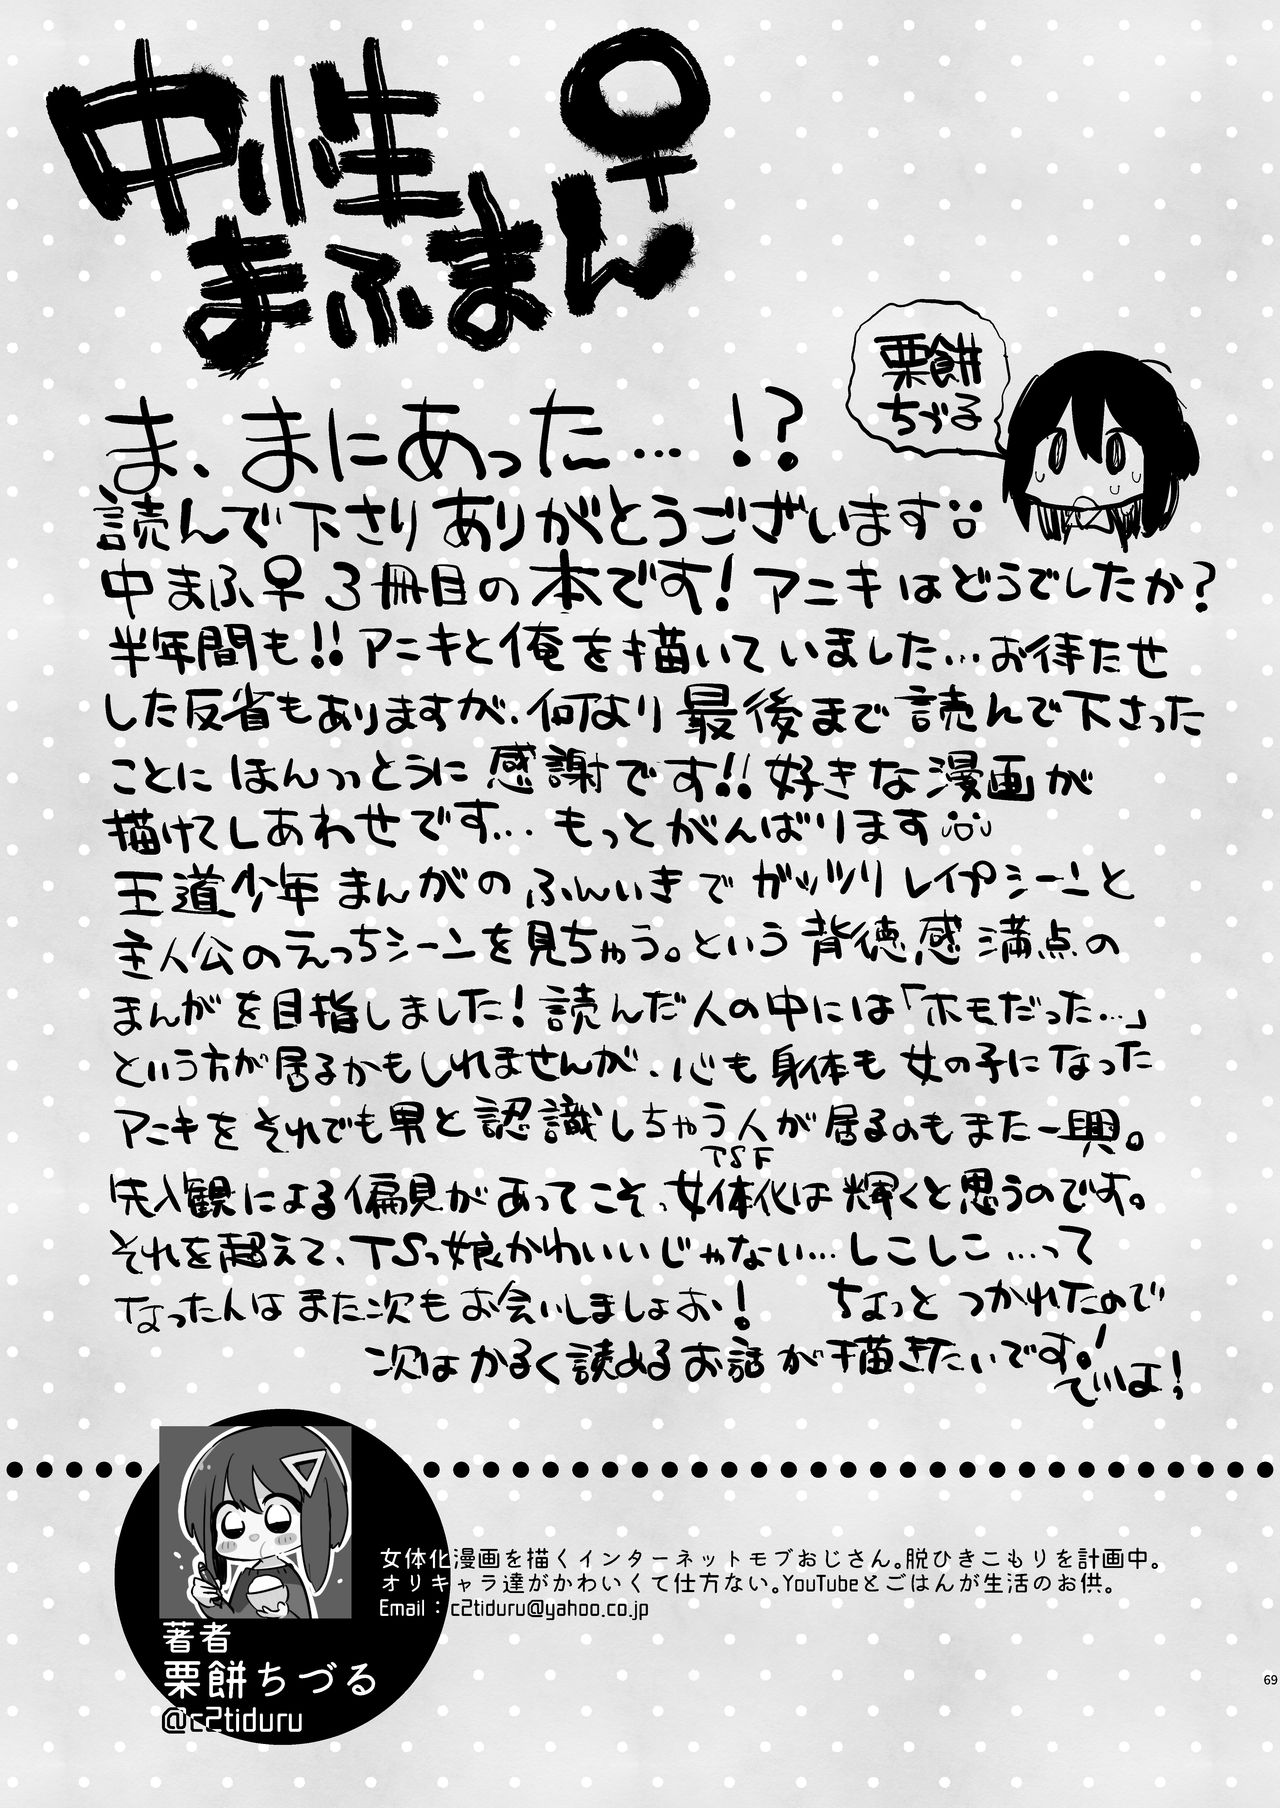 中性
まふまん♀
栗餅
ちづる
ま、まにあった…!?
読んで下さりありがとうございます
中まふ♀3冊目の本です!アニキはどうでしたか?
半年間も!!アニキと俺を描いていました…お待たせ
した反省もありますが、何より最後まで読んで下さった
ことにほんっっとうに感謝です!!好きな漫画が
描けてしあわせです…もっとがんばります
王道少年まんがのふんいきでガッツリレイプシーンと
主人公のえっちシーンを見ちゃう。という背徳感満点の
まんがを目指しました!読んだ人の中には「ホモだった…」
という方が居るかもしれませんが、心も身体も女の子になった
アニキをそれでも男と認識しちゃう人が居るのもまた一興。
TSF
先入観による偏見があってこそっ女体化は輝くと思うのです。
それを超えて、TSっ娘かわいいじゃない…しこしこ…って
なった人はまた次もお会いしましょお! ちょっとつかれたので
次はかるく読めるお話が描きたいです!
ではよ!
女体化漫画を描くインターネットモブおじさん。脱ひきこもりを計画中。
オリキャラ達がかわいくて仕方ない。YouTubeとごはんが生活のお供。
Email：c2tiduru@yahoo.co.jp
著者
栗餅ちづる
@c2tiduru
69